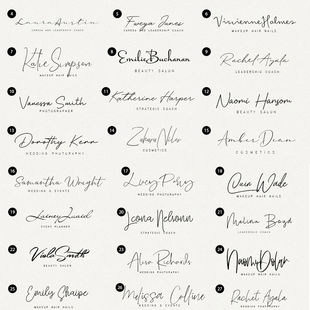 4
Laura Austin
CAREER AND LEADERSHIP COACH
5
Freya Jones
CAREER AND LEADERSHIP COACH
6
Vivienne Holmes
MAKEUP HAIR NAILS
7
Katie Simpson
MAKEUP HAIR NAILS
8
Emilie Buchanan
BEAUTY SALON
9
Rachel Azala
LEADERSHIP COACH
10
Vanessa Smith
PHOTOGRAPHER
11
Katherine Harper
STRATEGIC COACH
12
Naomi Hansom
BEAUTY SALON
13
Dorothy Kenn
WEDDING PHOTOGRAPHY
14
COSMETICS
15
Amber Dean
COSMETICS
16
Samantha Wright
WEDDING & EVENTS
17
Lucy Perry
WEDDING PHOTOGRAPHY
18
Cain Wade
MAKEUP HAIR NAILS
19
EVENT PLANNER
20
Leona Nelsonn
STRATEGIC COACH
21
Malina Boyd
LEADERSHIP COACH
22
Viola Smith
BEAUTY SALON
23
Alisa Richards
WEDDING PHOTOGRAPHY
24
Naomy Dolar
MAKEUP HAIR NAILS
25
Emily Shaipe
MAKEUP HAIR NAILS
26
Melissa Colline
WEDDING & EVENTS
27
Rachet Azala
WEDDING PHOTOGRAPHY